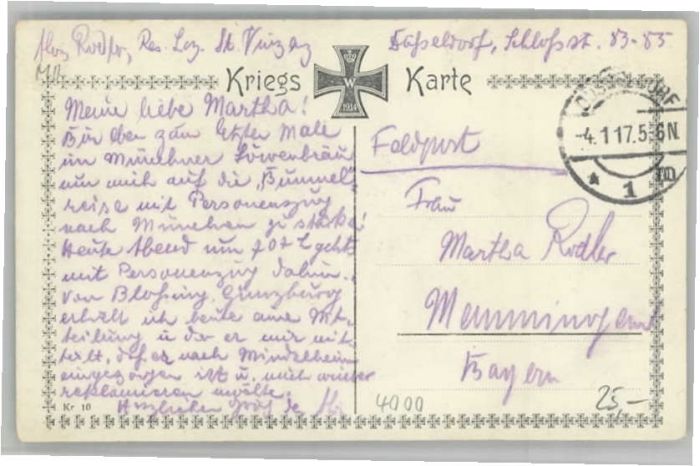 Alois Rodler, Res. Laz. St. Vinzenz Düsseldorf, Schloßst. 83-85
Kriegs Karte
W
1914
DÜSSELDORF
-4.1.17.5-6N.
* 1 m
Feldpost
Meine liebe Martha!
Bin eben zum letzten Male
im Münchner Löwenbräu
um mich auf die "Bummel"
reise mit Personenzug
nach München zu stärken!
Heute Abend um 7 geht
mit Personenzug dahin.
Von Günzburg
erhielt ich heute eine Mit-
teilung u. der er mir mit
teilt, daß er nach Mindelheim
eingezogen ist u. mich wieder
reklamieren wollte.
Herzlichen Gruß
Frau
Martha Rodler
Memmingen
Bayern
Kr 10
4000
25,-